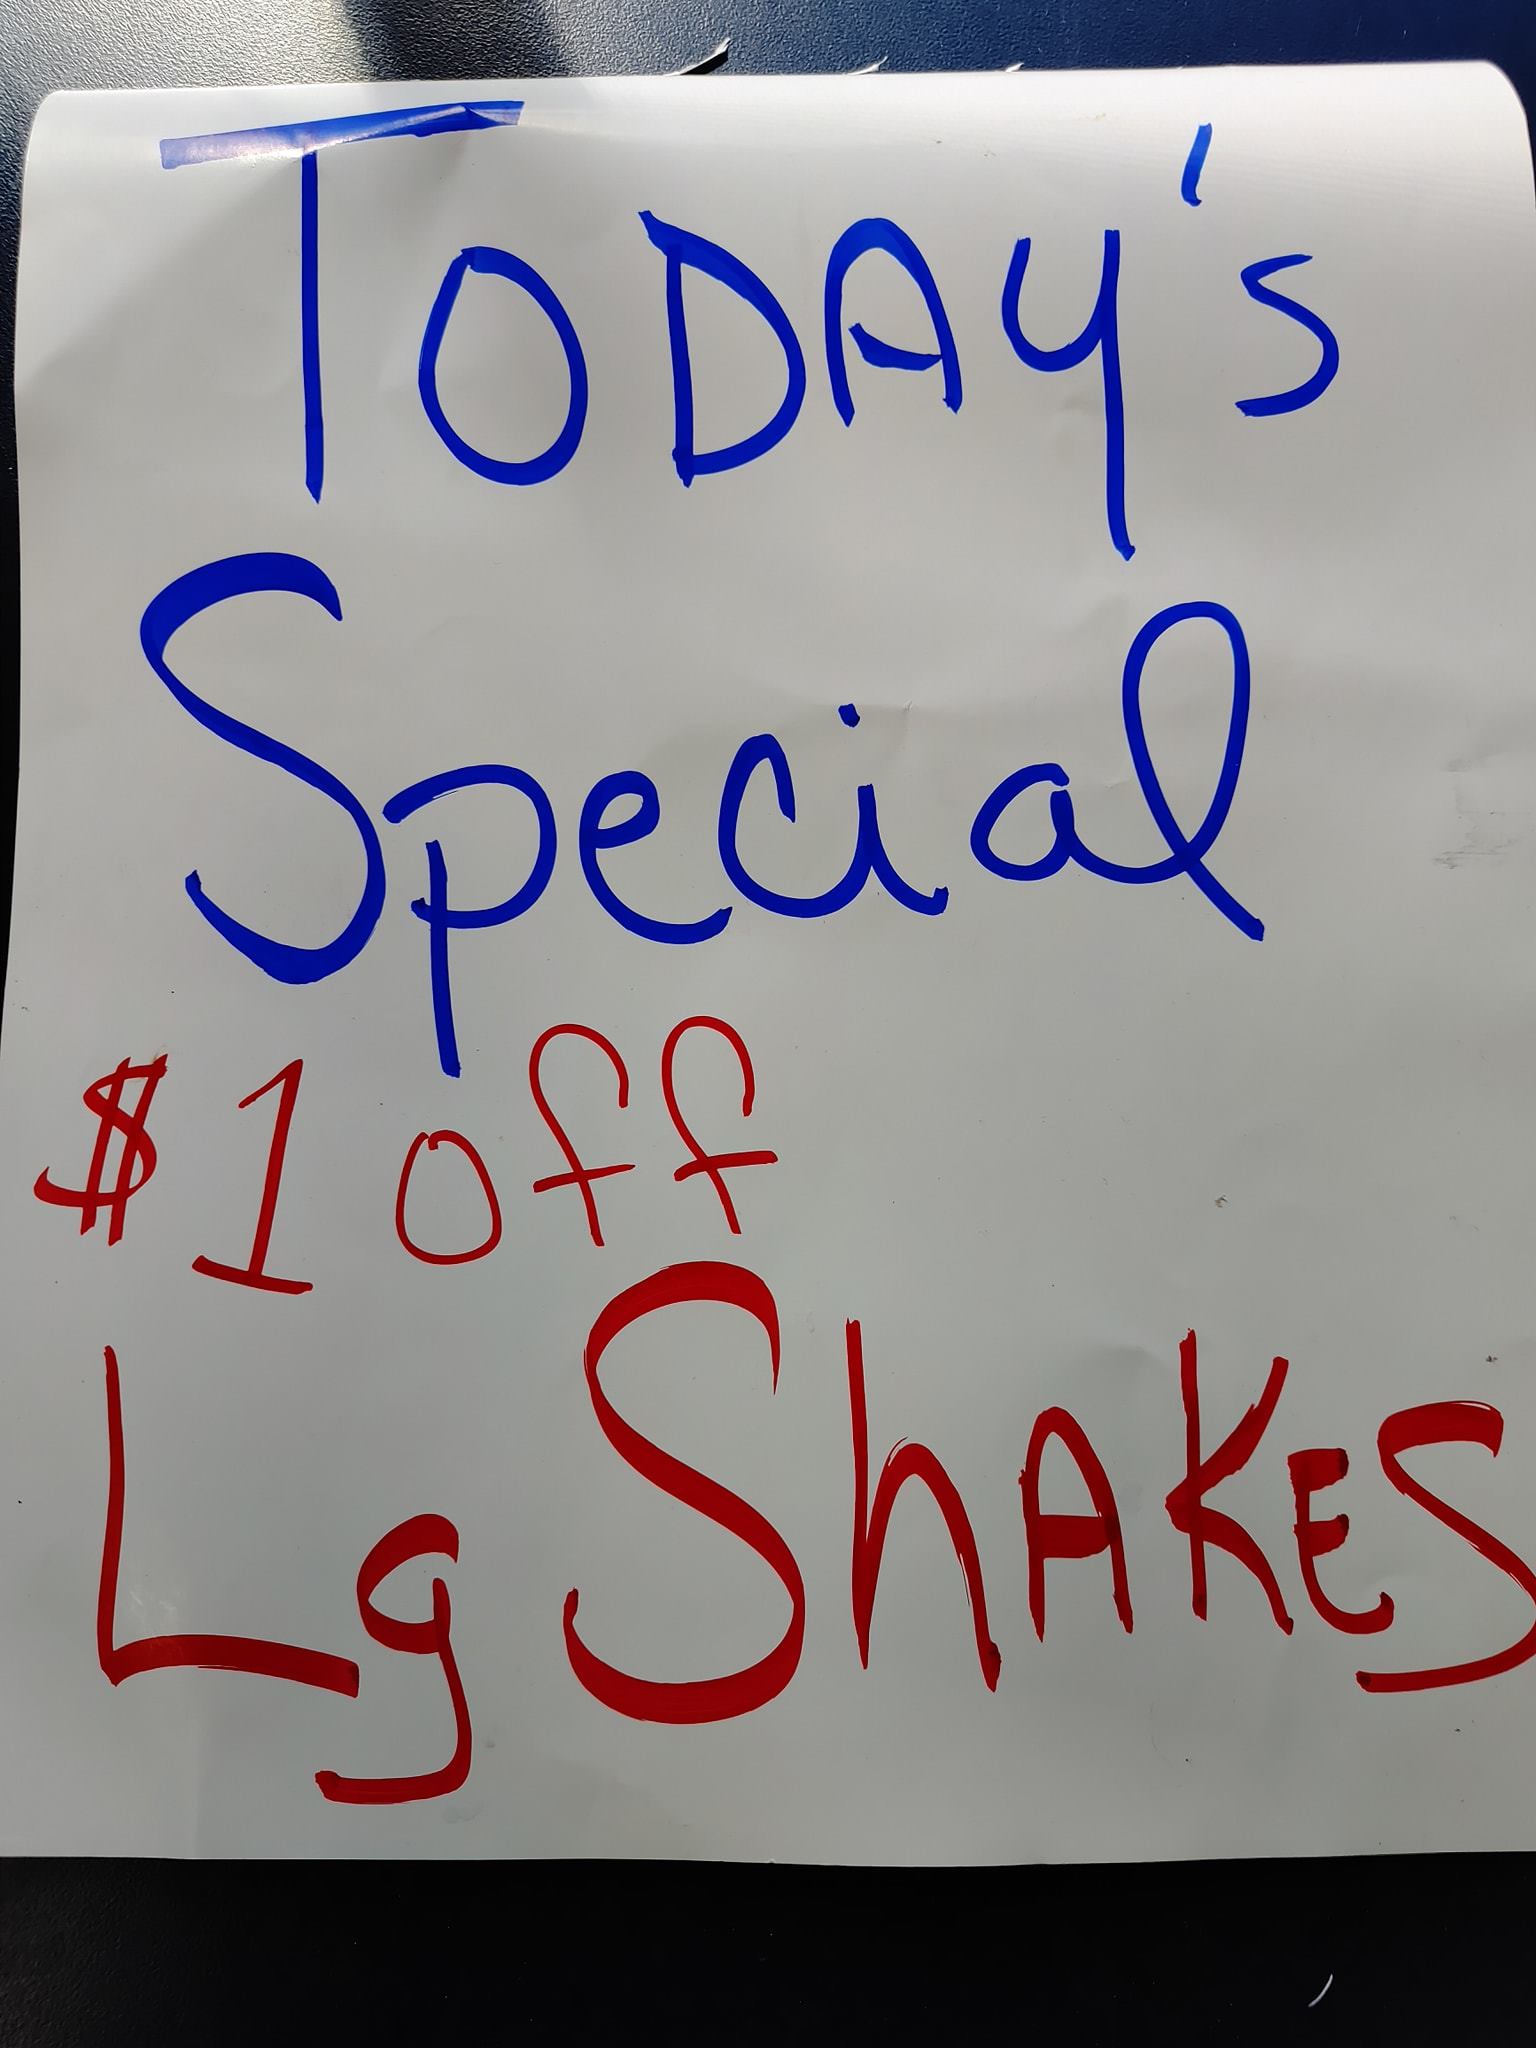 TODAY's
Special
$1 off
Lg ShAKES